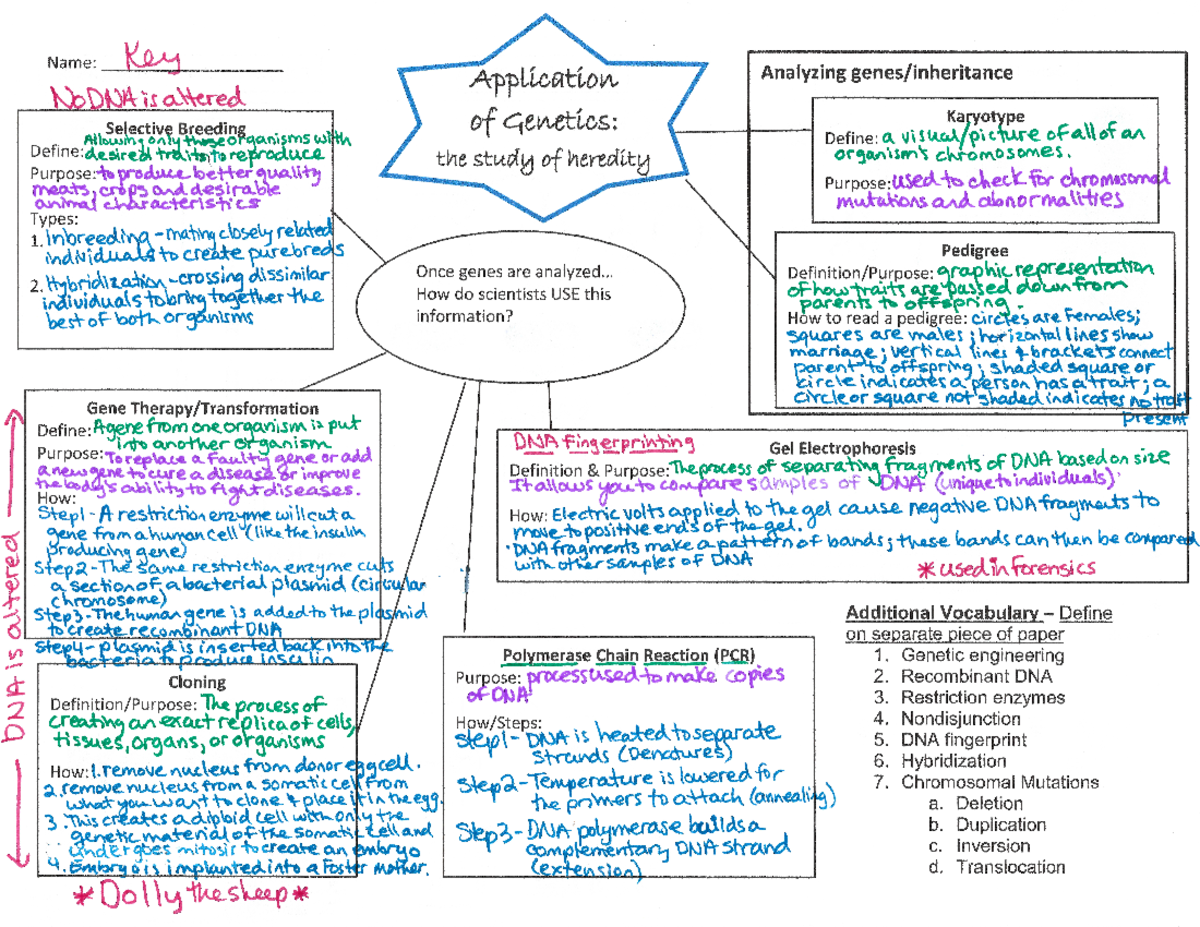 Name: Key
No DNA is altered
Application
of Genetics:
the study of heredity
Selective Breeding
Define: Allowing only those organisms with
desired traits to reproduce
Purpose: to produce better quality
meats, crops and desirable
animal characteristics
Types:
1. Inbreeding - mating closely related
individuals to create purebreds
2. Hybridization - crossing dissimilar
individuals to bring together the
best of both organisms
Once genes are analyzed...
How do scientists USE this
information?
Analyzing genes/inheritance
Karyotype
Define: a visual/picture of all of an
organism's chromosomes.
Purpose: used to check for chromosomal
mutations and abnormalities
Pedigree
Definition/Purpose: graphic representation
of how traits are passed down from
parents to offspring.
How to read a pedigree: circles are females;
squares are males; horizontal lines show
marriage; vertical lines & brackets connect
parent to offspring; shaded square or
circle indicates a person has a trait; a
circle or square not shaded indicates no trait
present
DNA is altered
Gene Therapy/Transformation
Define: A gene from one organism is put
into another organism
Purpose: To replace a faulty gene or add
a new gene to cure a disease or improve
the body's ability to fight diseases.
How:
Step 1- A restriction enzyme will cut a
gene from a human cell (like the insulin
producing gene)
Step 2- The same restriction enzyme cuts
a section of a bacterial plasmid (circular
chromosome)
Step 3- The human gene is added to the plasmid
to create recombinant DNA
Step 4- plasmid is inserted back into the
bacteria to produce insulin
DNA Fingerprinting
Gel Electrophoresis
Definition & Purpose: The process of separating fragments of DNA based on size
It allows you to compare samples of DNA (unique to individuals)
How: Electric volts applied to the gel cause negative DNA fragments to
move to positive ends of the gel.
· DNA fragments make a pattern of bands; these bands can then be compared
with other samples of DNA
*used in forensics
Cloning
Definition/Purpose: The process of
creating an exact replica of cells,
tissues, organs, or organisms
How: 1. remove nucleus from donor egg cell.
2. remove nucleus from a somatic cell from
what you want to clone & place it in the egg.
3. This creates a diploid cell with only the
genetic material of the somatic cell and
undergoes mitosis to create an embryo
4. Embryo is implanted into a foster mother.
*Dolly the sheep*
Polymerase Chain Reaction (PCR)
Purpose: process used to make copies
of DNA
How/Steps:
Step 1- DNA is heated to separate
strands (Denatures)
Step 2- Temperature is lowered for
the primers to attach (annealing)
Step 3- DNA polymerase builds a
complementary DNA strand
(extension)
Additional Vocabulary – Define
on separate piece of paper
1. Genetic engineering
2. Recombinant DNA
3. Restriction enzymes
4. Nondisjunction
5. DNA fingerprint
6. Hybridization
7. Chromosomal Mutations
a. Deletion
b. Duplication
c. Inversion
d. Translocation